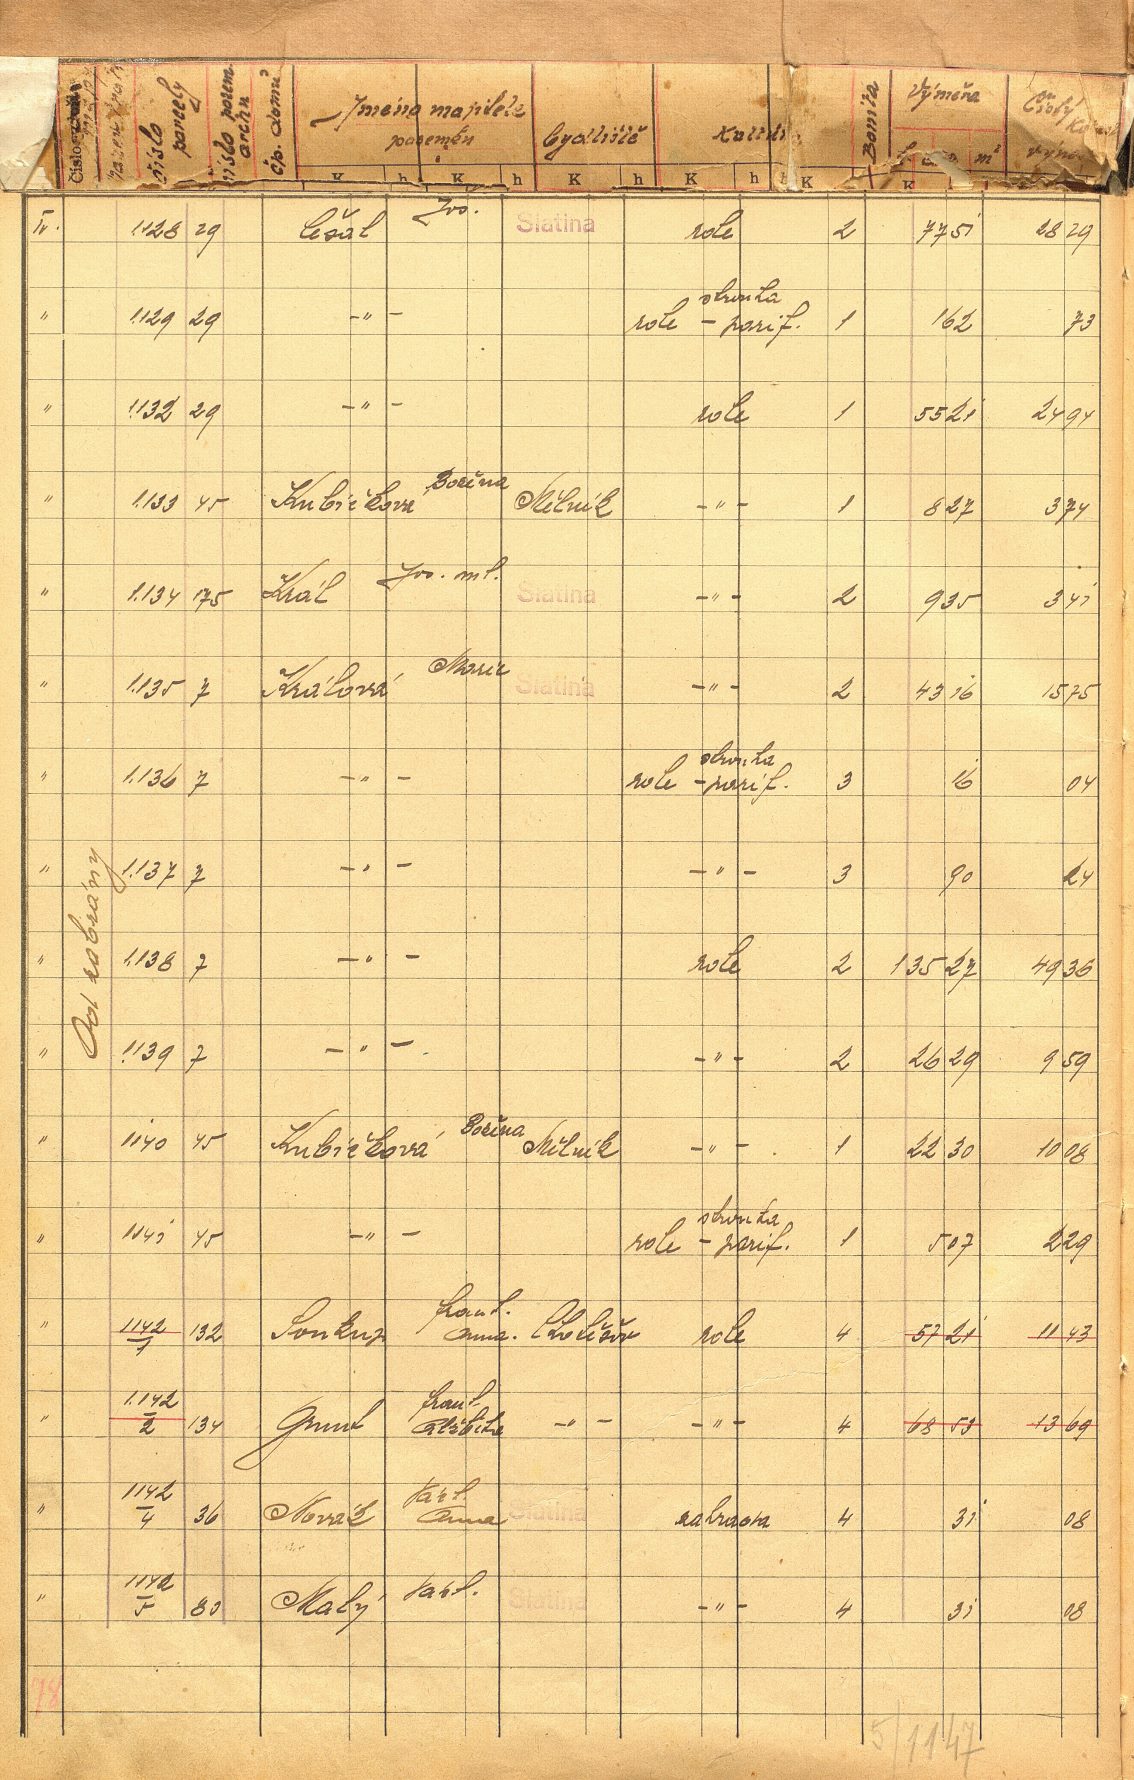 číslo parcely
číslo pozem. archu
čp. domu
Jméno majitele pozemku
bydliště
Bonita
Výměra
m²
Čistý
K h K h K h K h K K
IV. 1128 29 Češal Jos. Slatina role 2 77 51 28 29
" 1129 29 -"- role - parif. 1 162 73
" 1132 29 -"- role 1 55 21 24 94
" 1133 45 Kubíčková Božena Mělník -"- 1 827 3 74
" 1134 175 Král Jos. ml. Slatina -"- 2 935 3 41
" 1135 7 Králová Marie Slatina -"- 2 43 16 15 75
" 1136 7 -"- role - parif. 3 16 04
" 1137 7 -"- -"- 3 90 24
" 1138 7 -"- role 2 135 27 49 36
" 1139 7 -"- -"- 2 26 29 9 59
" 1140 45 Kubíčková Božena Mělník -"- 1 22 30 10 08
" 1141 45 -"- role - parif. 1 507 2 29
" 1142/1 132 Soukup Frant. Anna role 4 57 21 11 43
" 1142/2 134 Grunt Frant. Alžběta -"- -"- 4 68 53 13 69
" 1142/4 36 Novák Karl. Anna Slatina zahrada 4 31 08
" 1142/5 80 Malý Karl. Slatina -"- 4 31 08
78
5/1147